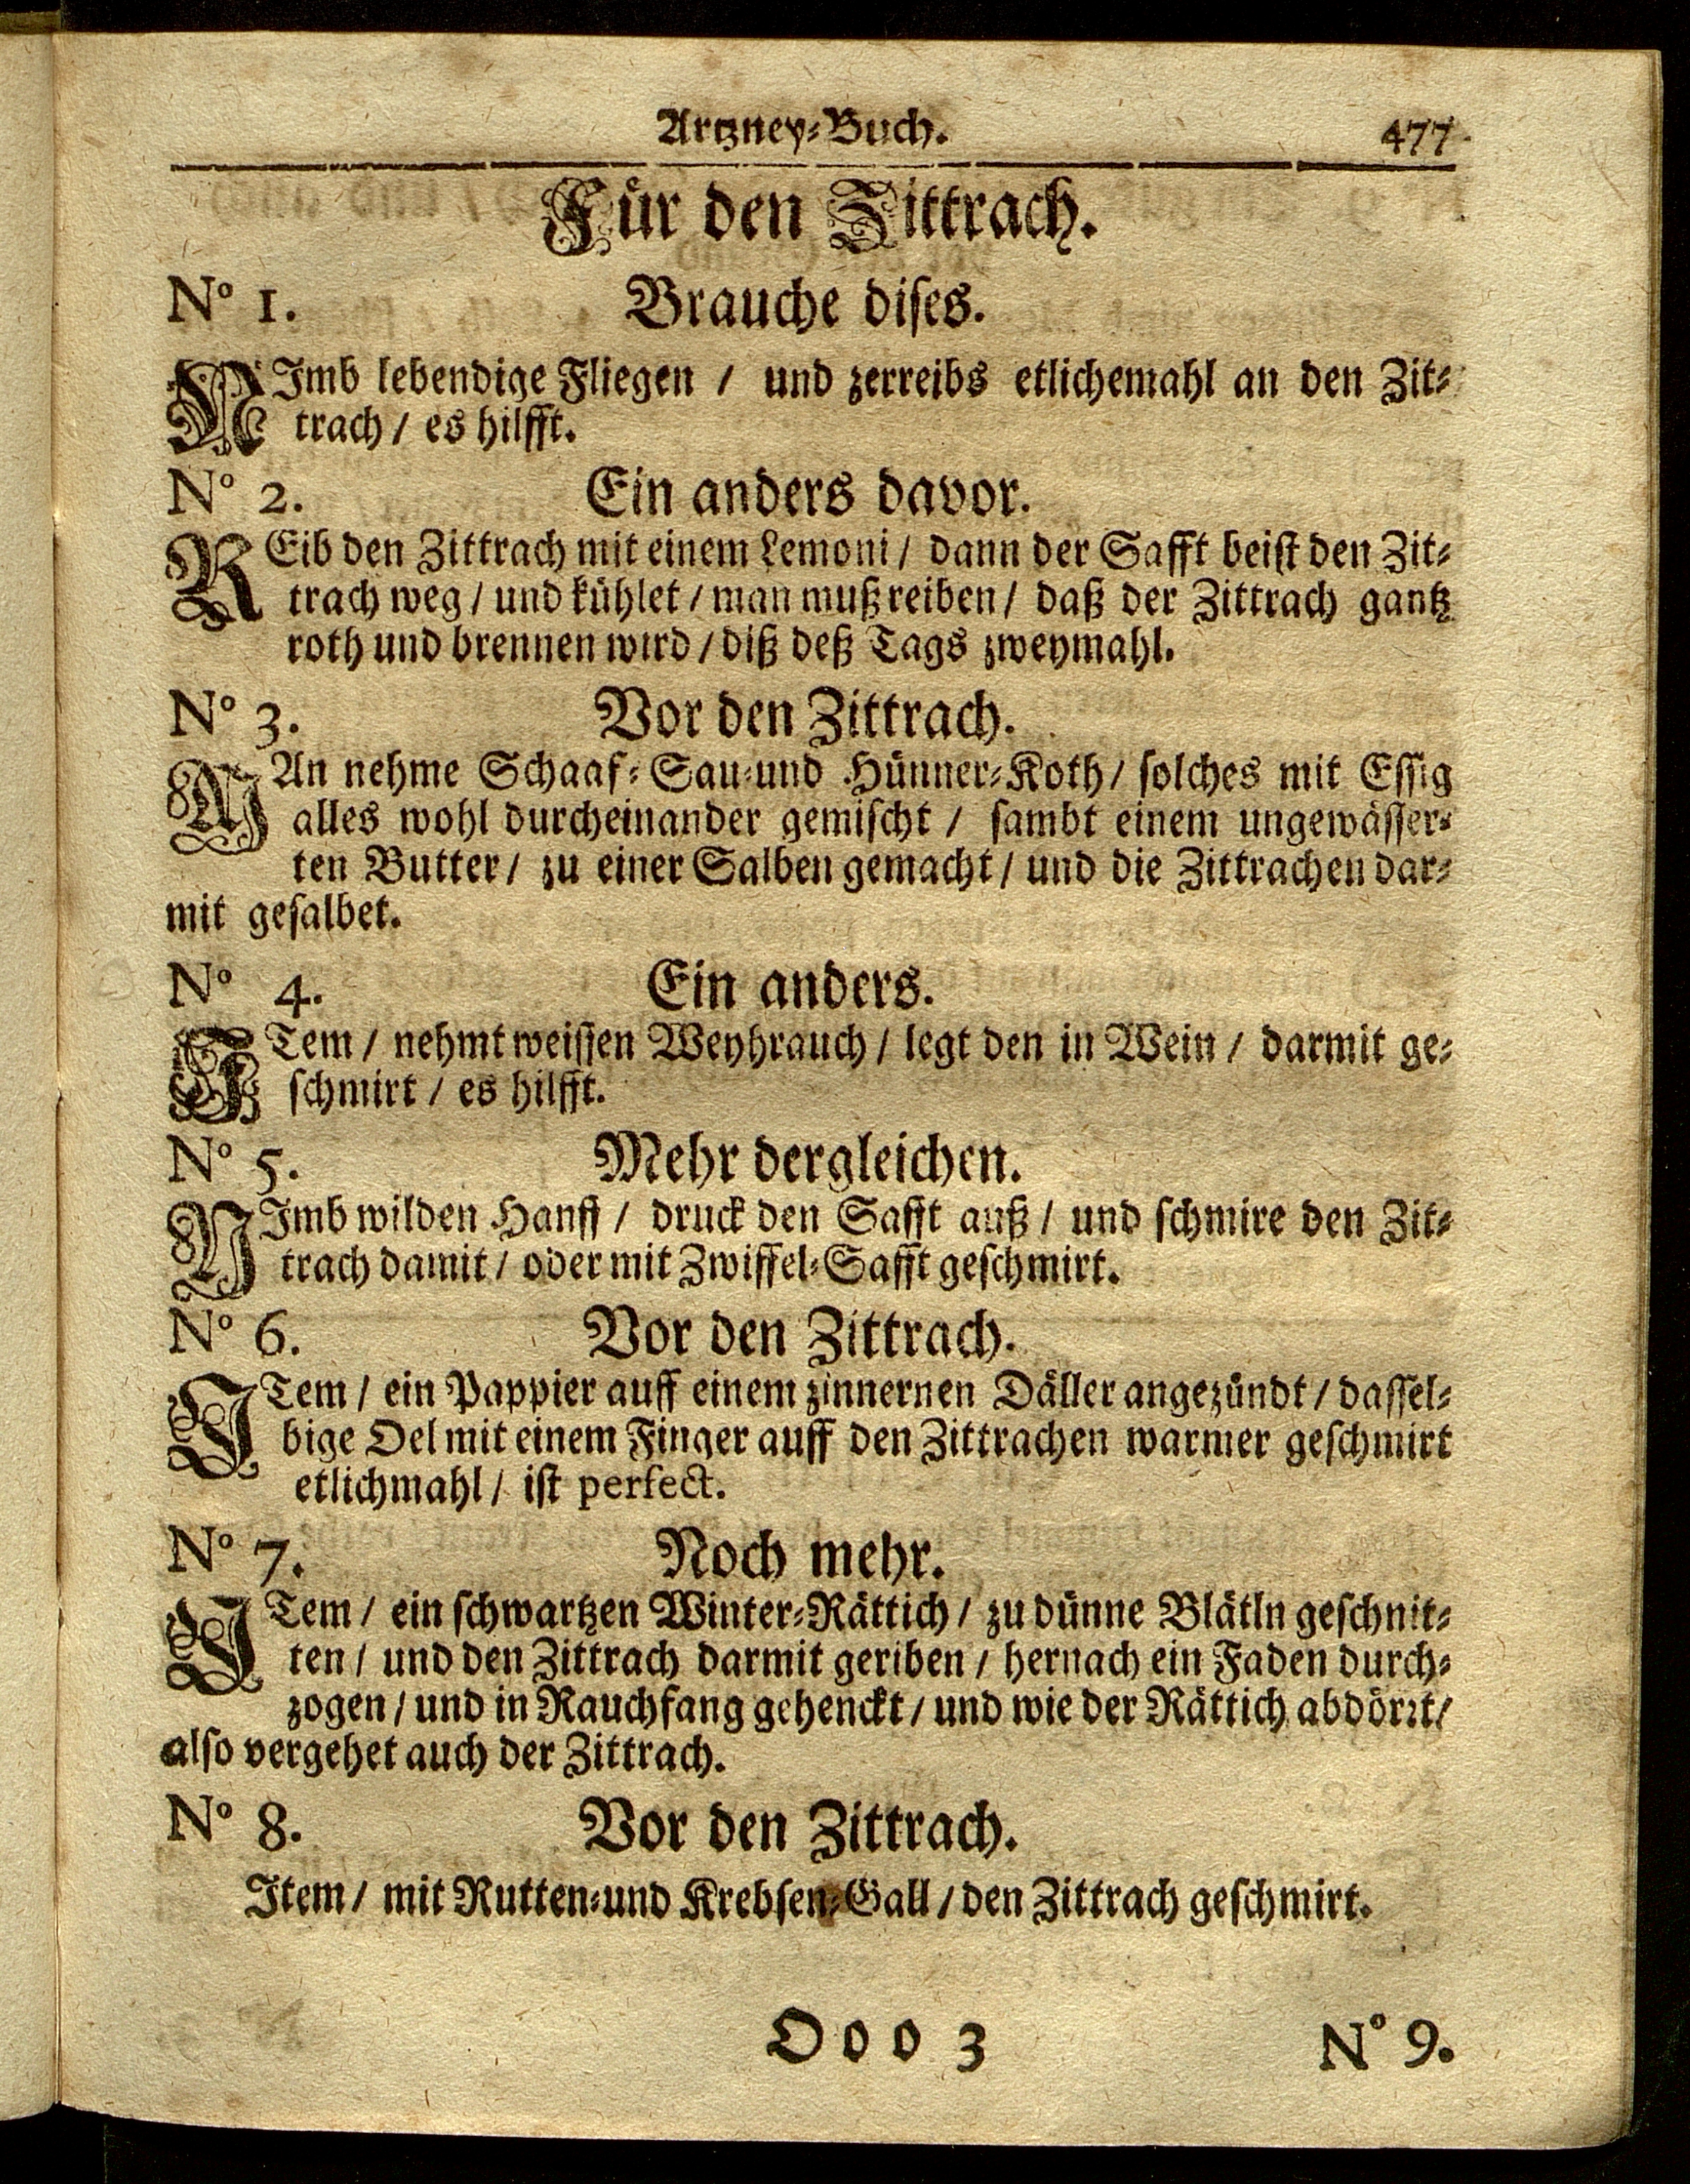 Artzney-Buch. 477
Für den Zittrach.
N° 1. Brauche dises.
NImb lebendige Fliegen / und zerreibs etlichemahl an den Zit-
trach / es hilfft.
N° 2. Ein anders davor.
REib den Zittrach mit einem Lemoni / dann der Safft beist den Zit-
trach weg / und kühlet / man muß reiben / daß der Zittrach gantz
roth und brennen wird / diß deß Tags zweymahl.
N° 3. Vor den Zittrach.
MAn nehme Schaaf- Sau-und Hünner-Koth / solches mit Essig
alles wohl durcheinander gemischt / sambt einem ungewässer-
ten Butter / zu einer Salben gemacht / und die Zittrachen dar-
mit gesalbet.
N° 4. Ein anders.
ITem / nehmt weissen Weyhrauch / legt den in Wein / darmit ge-
schmirt / es hilfft.
N° 5. Mehr dergleichen.
NImb wilden Hanff / druck den Safft auß / und schmire den Zit-
trach damit / oder mit Zwiffel-Safft geschmirt.
N° 6. Vor den Zittrach.
ITem / ein Pappier auff einem zinnernen Däller angezündt / dassel-
bige Oel mit einem Finger auff den Zittrachen warmer geschmirt
etlichmahl / ist perfect.
N° 7. Noch mehr.
ITem / ein schwartzen Winter-Rättich / zu dünne Blätln geschnit-
ten / und den Zittrach darmit geriben / hernach ein Faden durch-
zogen / und in Rauchfang gehenckt / und wie der Rättich abdörrt /
also vergehet auch der Zittrach.
N° 8. Vor den Zittrach.
Item / mit Rutten-und Krebsen-Gall / den Zittrach geschmirt.
Ooo 3 N° 9.